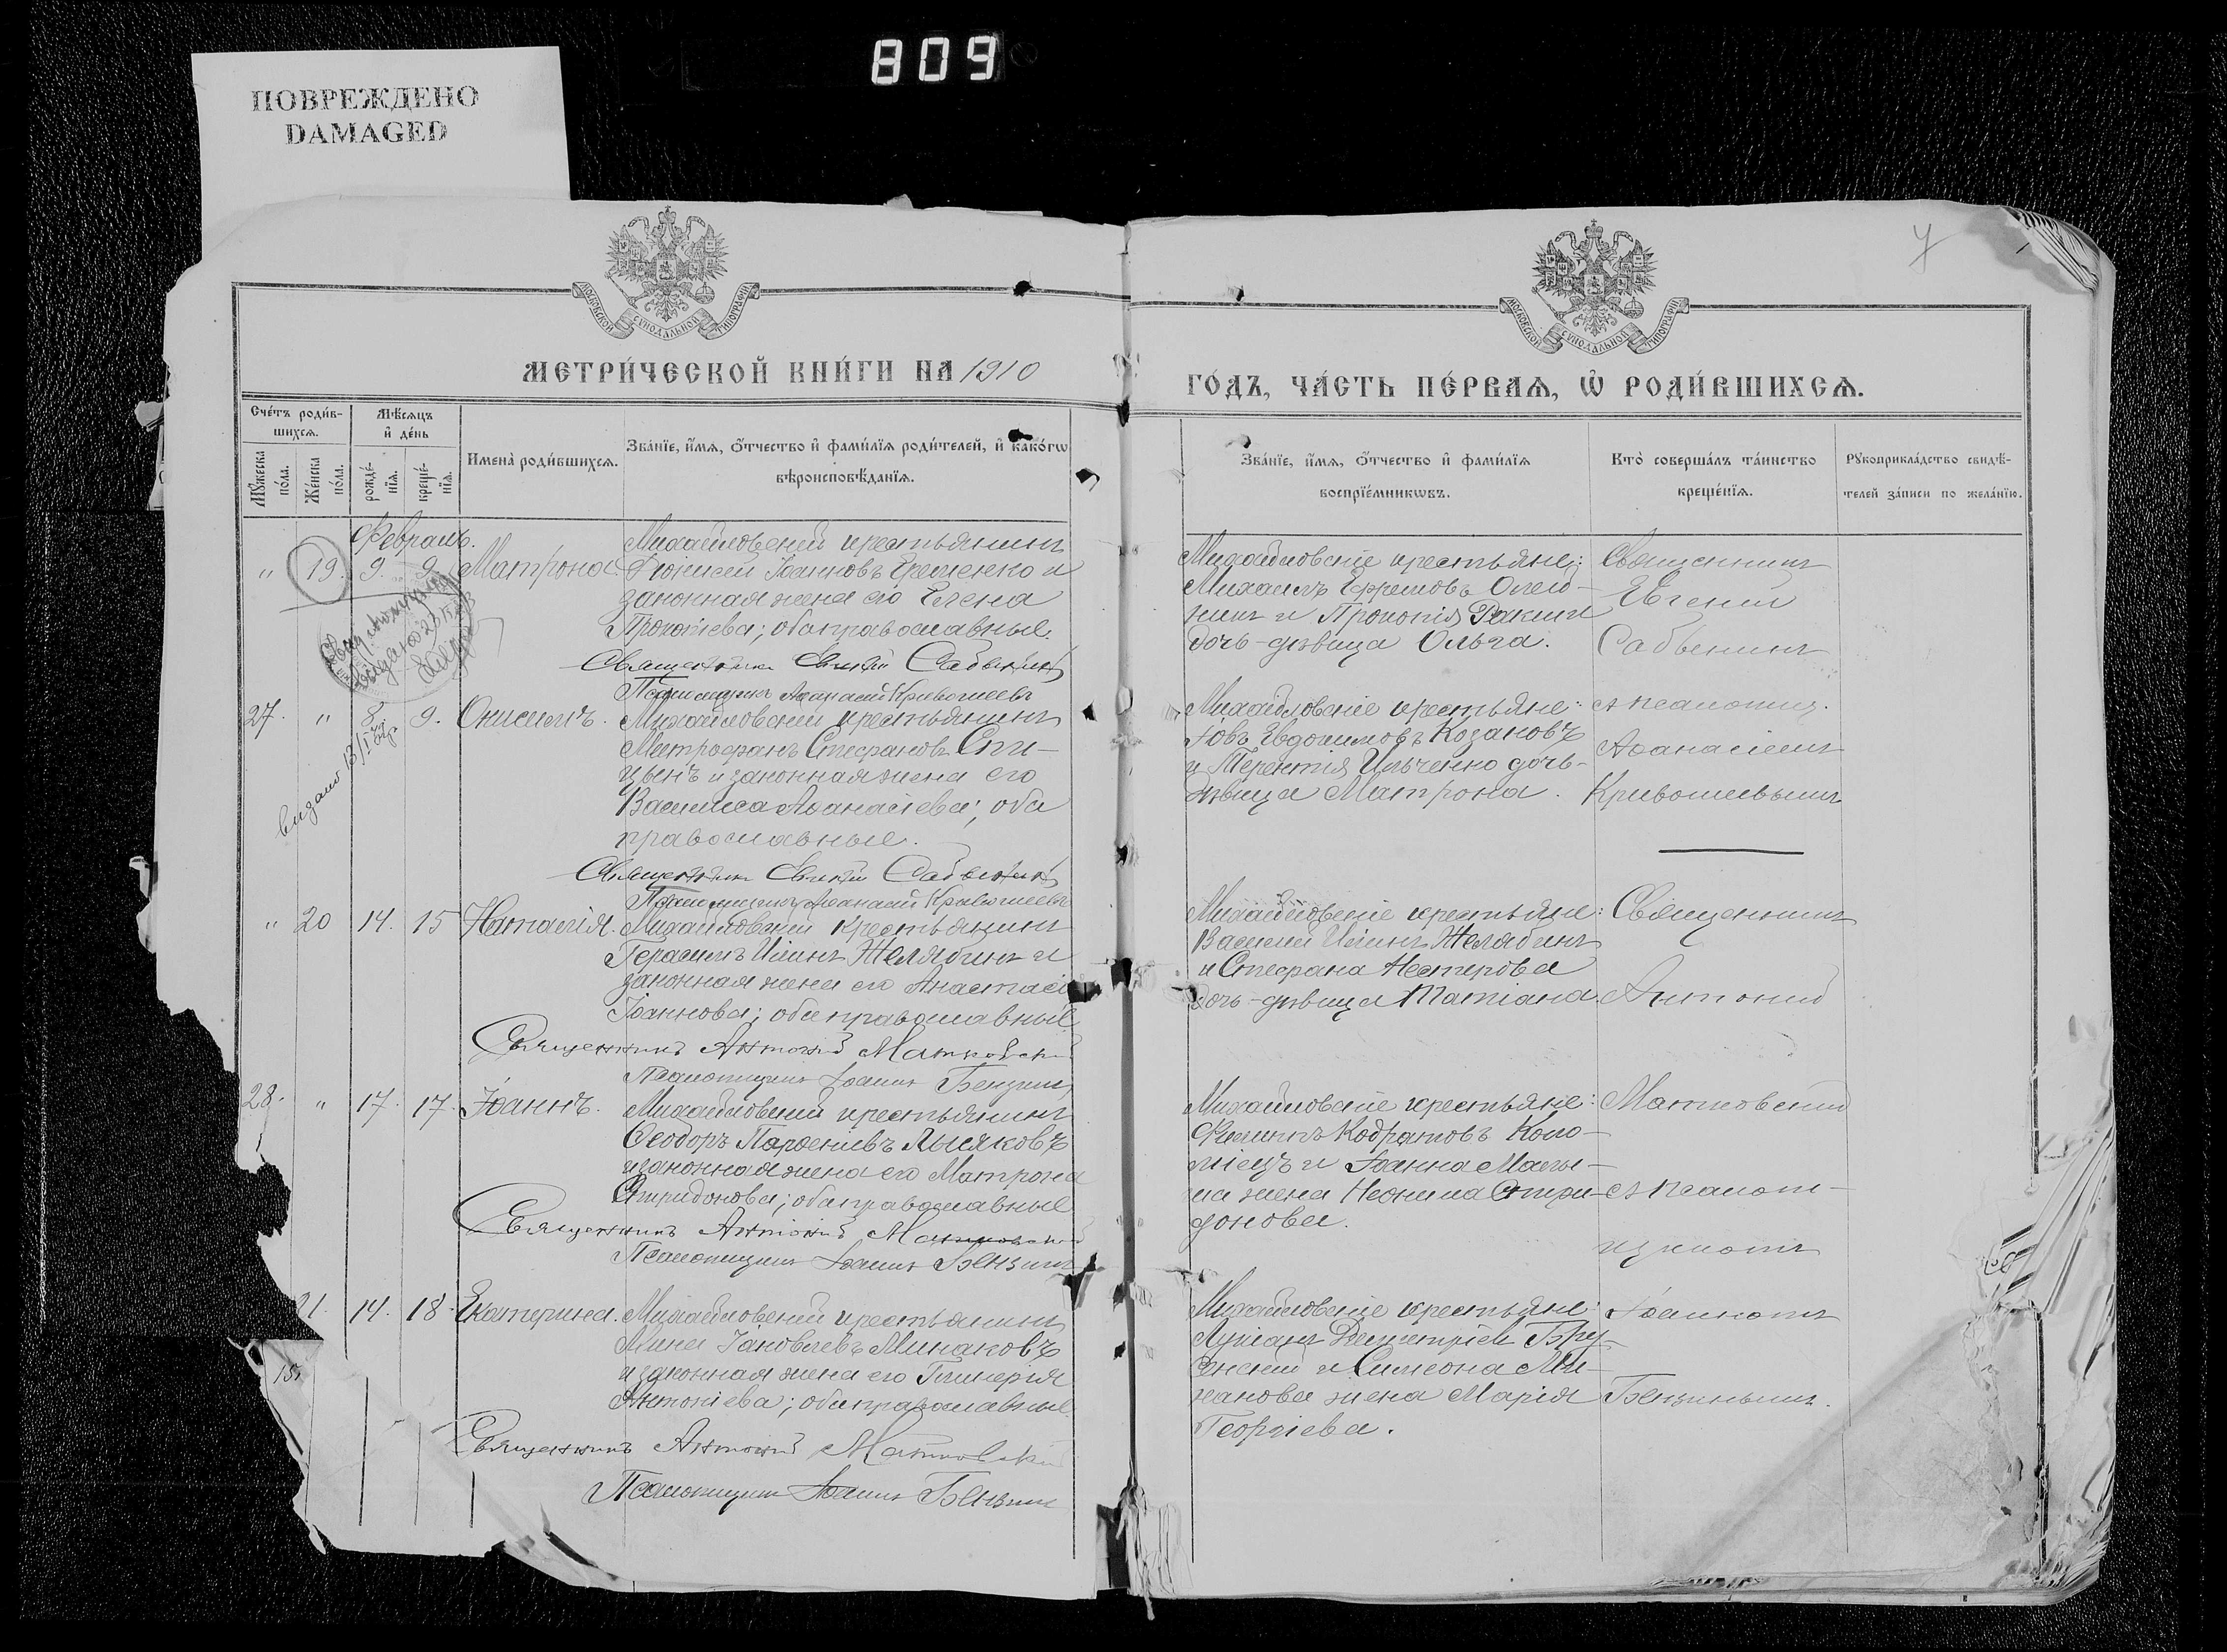 809
ПОВРЕЖДЕНО
DAMAGED
МОСКОВСКОЙ СѴНОДАЛЬНОЙ ТИПОГРАФІИ
МОСКОВСКОЙ СѴНОДАЛЬНОЙ ТИПОГРАФІИ
7
МЕТРИ́ЧЕСКОЙ КНИ́ГИ НА 1910
ГО́ДЪ, ЧА́СТЬ ПЕ́РВАѦ, Ѡ҆ РОДИ́ВШИХСѦ.
Сче́тъ роди́в-
шихсѧ.
Мꙋ́жеска по́ла.
Же́нска по́ла.
Мѣ́сѧцъ
и҆ де́нь
рожде́-
нїѧ.
креще́-
нїѧ.
Имена̀ роди́вшихсѧ.
Зва́нїе, и҆́мѧ, ѻ҆́тчество и҆ фами́лїѧ роди́телей, и҆ како́гѡ
вѣроисповѣ́данїѧ.
Зва́нїе, и҆́мѧ, ѻ҆́тчество и҆ фами́лїѧ
воспрїе́мникѡвъ.
Кто̀ соверша́лъ та́инство
креще́нїѧ.
Рꙋкоприкла́дство свидѣ́-
телей за́писи по жела́нїю.
Февраль.
" 19. 9. 9. Матрона.
Михайловскій крестьянинъ
Діонисій Іоанновъ Еременко и
законная жена его Елена
Прокопіева; оба православные.
Священникъ Евгеній Сабынинъ
Псаломщикъ Аѳанасій Кривошеевъ
Михайловскіе крестьяне:
Михаилъ Ефремовъ
и Прокопія Ракши
дочь-дѣвица Ольга.
Священникъ
Евгеній
Сабынинъ
27. " 8. 9. Онисимъ.
выдано 13/I
Михайловскій крестьянинъ
Митрофанъ Стефановъ Спи-
цынъ и законная жена его
Василиса Аѳанасіева; оба
православные.
Священникъ Евгеній Сабынинъ
Псаломщикъ Аѳанасій Кривошеевъ
Михайловскіе крестьяне:
Іовъ Евдокимовъ Козановъ
и Терентія Ильченко дочь-
дѣвица Матрона.
съ псаломщ.
Аѳанасіемъ
Кривошеевымъ
" 20 14. 15 Наталія.
Михайловскій крестьянинъ
Герасимъ Илiинъ Желябинъ и
законная жена его Анастасія
Іоаннова; оба православные
Священникъ Антоній Матковскій
Псаломщикъ Іоаннъ Бензинъ
Михайловскіе крестьяне:
Василій Иліинъ Желябинъ
и Стефана Нестерова
дочь-дѣвица Татіана.
Священникъ
Антоній
28. " 17. 17. Іоаннъ.
Михайловскій крестьянинъ
Ѳеодоръ Парѳеніевъ Лысяковъ
и законная жена его Матрона
Спиридонова; оба православные
Священникъ Антоній Матковскій
Псаломщикъ Іоаннъ Бензинъ
Михайловскіе крестьяне:
Филиппъ Кодратовъ Коло-
міецъ и Іоанна Малы-
жена Неонила Спири-
донова.
Матковскій
съ псалом-
щикомъ
21. 14. 18. Екатерина.
Михайловскій крестьянинъ
Мина Іаковлевъ Минаковъ
и законная жена его Гликерія
Антоніева; оба православные.
Священникъ Антоній Матковскій
Псаломщикъ Іоаннъ Бензинъ
Михайловскіе крестьяне:
Лукіанъ Димитріев
и Симеона Ми-
жена Марія
Георгіева.
Іоанномъ
Бензинымъ.